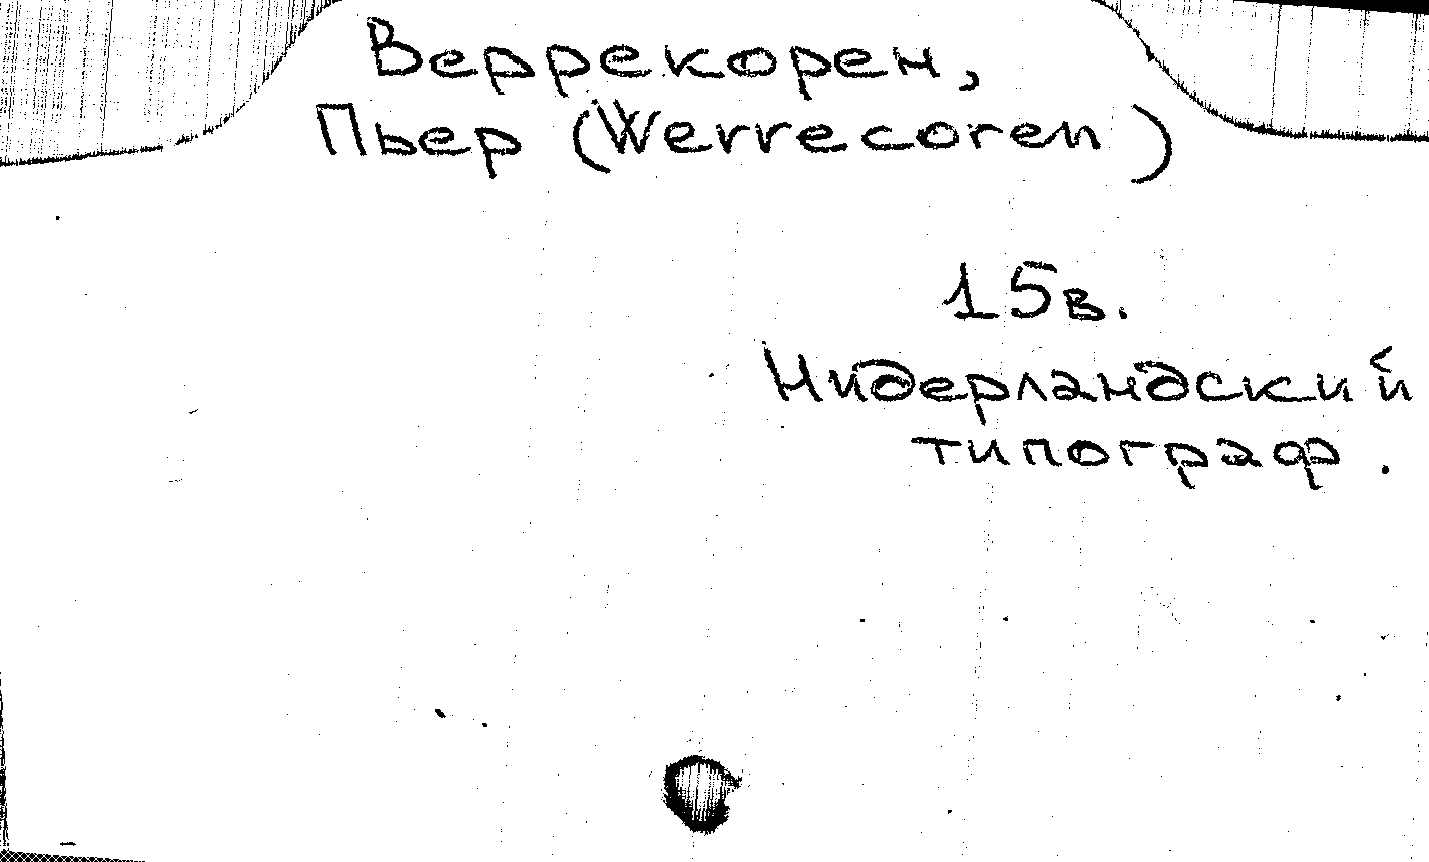 Веррекорен,
Пьер (Werrecoren)
15в.
Нидерландский
типограф.